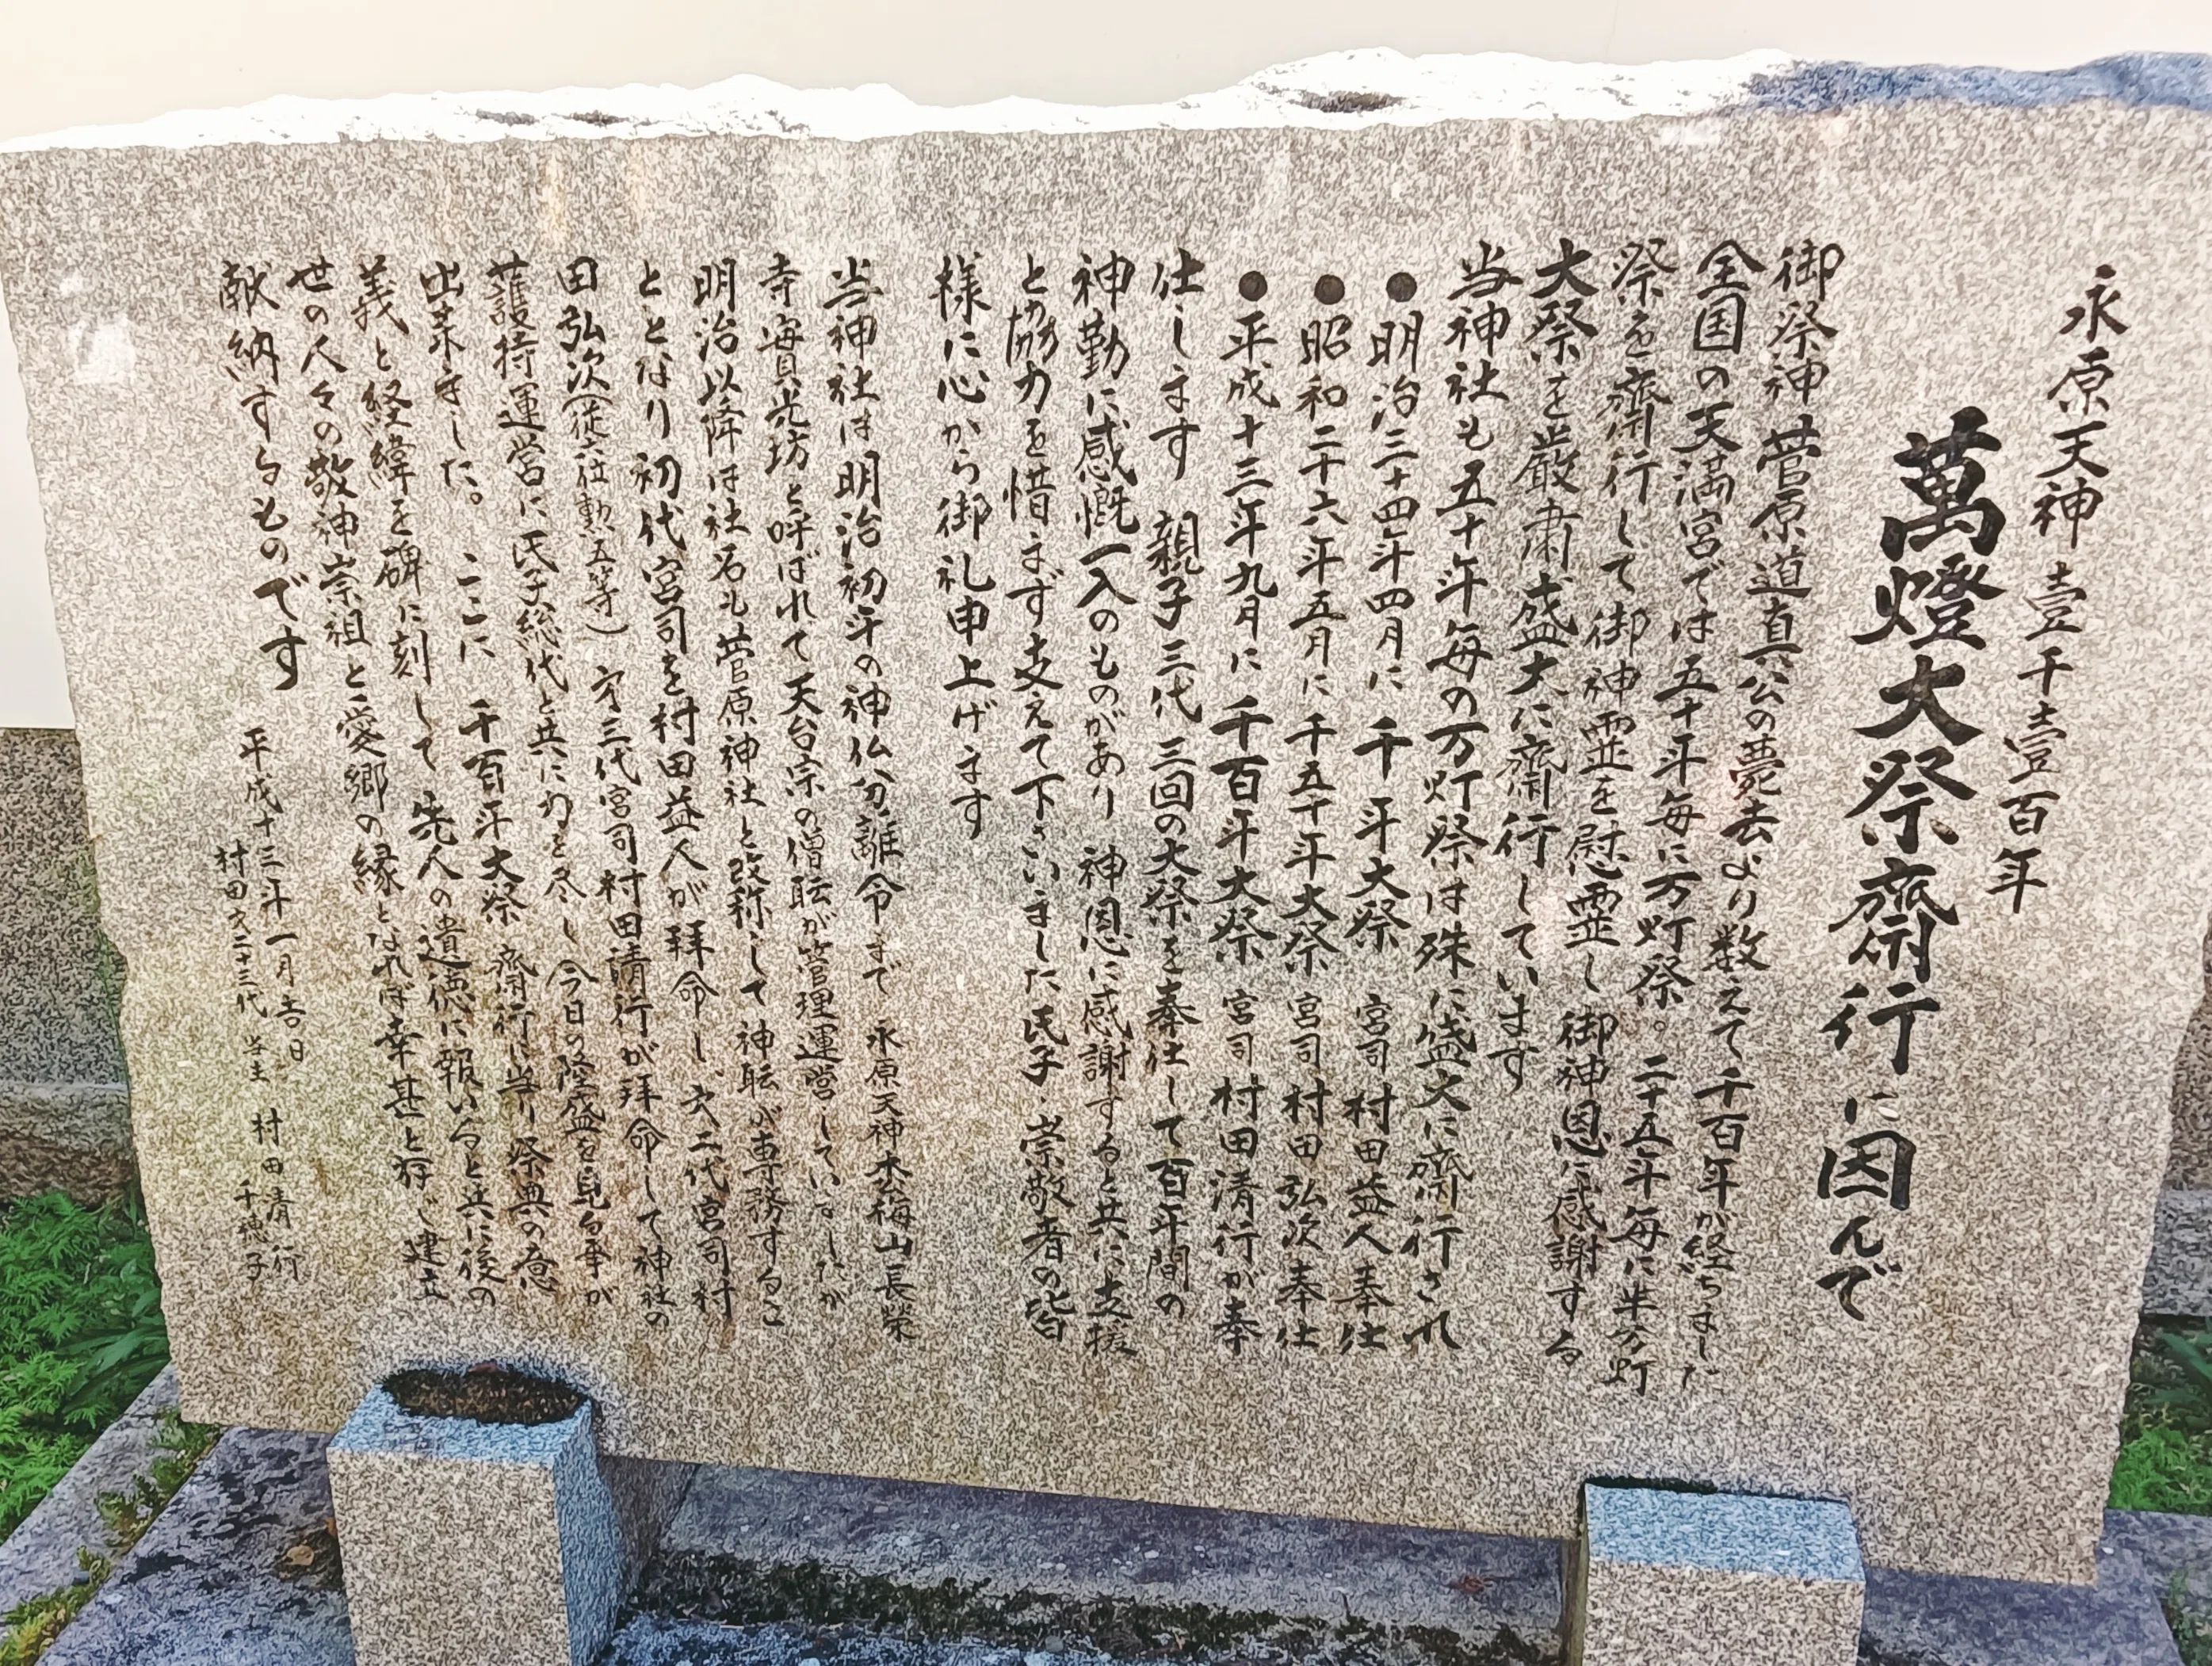 永原天神 壹千壹百年
萬燈大祭齋行に因んで
御祭神菅原道真公の薨去より数えて千百年が経ちました
全国の天満宮では五十年毎に万灯祭。二十五年毎に半万灯
祭を齋行して御神霊を慰霊し御神恩に感謝する
大祭を厳粛盛大に齋行しています
当神社も五十年毎の万灯祭は殊に盛大に齋行され
●明治三十四年四月に 千年大祭 宮司 村田益人奉仕
●昭和二十六年五月に 千五十年大祭 宮司 村田弘次奉仕
●平成十三年九月に 千百年大祭 宮司 村田清行が奉
仕します 親子三代 三回の大祭を奉仕して百年間の
神勤に感慨一入のものがあり 神恩に感謝すると共に支援
と協力を惜まず支えて下さいました氏子・崇敬者の皆
様に心から御礼申上げます
当神社は明治初年の神仏分離令まで 永原天神 梅山長榮
寺 光坊と呼ばれて天台宗の僧職が管理運営していましたが
明治以降は社名も菅原神社と改称して神職が専務するこ
ととなり初代宮司を村田益人が拝命し、次二代宮司村
田弘次(従六位勲五等) 次三代宮司村田清行が拝命して神社の
護持運営に氏子総代と共に力を尽し今日の隆盛を見る事が
出来ました。 ここに 千百年大祭 齋行に当り祭典の意
義と経緯を碑に刻して 先人の遺徳に報いると共に後の
世の人々の敬神崇祖と愛郷の縁となれば幸甚と存じ建立
献納するものです
平成十三年一月吉日
村田家二十三代 当主 村田清行
千穂子